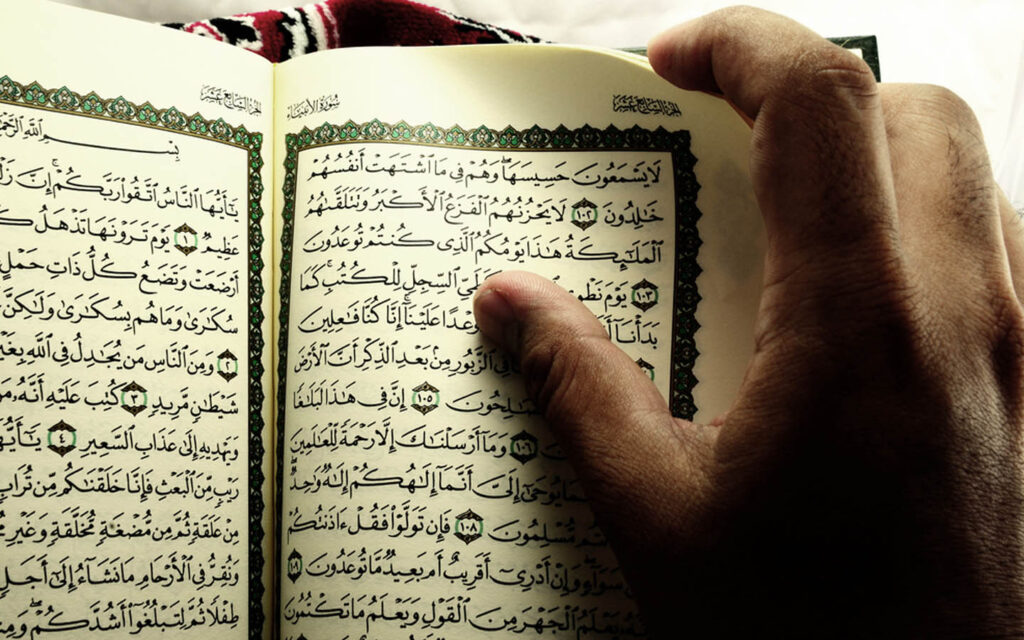 الجُزْءُ السَّابِعَ عَشَرَ سُورَةُ الأَنبِيَاءِ
لَا يَسْمَعُونَ حَسِيسَهَا ۖ وَهُمْ فِي مَا ٱشْتَهَتْ أَنفُسُهُمْ
خَٰلِدُونَ ١٠٢ لَا يَحْزُنُهُمُ ٱلْفَزَعُ ٱلْأَكْبَرُ وَتَتَلَقَّىٰهُمُ
ٱلْمَلَٰٓئِكَةُ هَٰذَا يَوْمُكُمُ ٱلَّذِي كُنتُمْ تُوعَدُونَ
١٠٣ يَوْمَ نَطْوِي ٱلسِّجِلِّ لِلْكُتُبِ ۚ كَمَا
بَدَأْنَآ وَعْدًا عَلَيْنَآ ۚ إِنَّا كُنَّا فَٰعِلِينَ
فِي ٱلزَّبُورِ مِنۢ بَعْدِ ٱلذِّكْرِ أَنَّ ٱلْأَرْضَ
ٱلصَّٰلِحُونَ ١٠٥ إِنَّ فِي هَٰذَا لَبَلَٰغًا
١٠٦ وَمَآ أَرْسَلْنَٰكَ إِلَّا رَحْمَةً لِّلْعَٰلَمِينَ
يُوحَىٰٓ إِلَيَّ أَنَّمَآ إِلَٰهُكُمْ إِلَٰهٌ وَٰحِدٌ ۖ
مُّسْلِمُونَ ١٠٨ فَإِن تَوَلَّوْا۟ فَقُلْ ءَاذَنتُكُمْ
سَوَآءٍ ۖ وَإِنْ أَدْرِيٓ أَقَرِيبٌ أَم بَعِيدٌ مَّا تُوعَدُونَ ١٠٩
يَعْلَمُ ٱلْجَهْرَ مِنَ ٱلْقَوْلِ وَيَعْلَمُ مَا تَكْتُمُونَ
الجُزْءُ السَّابِعَ عَشَرَ
بِسْمِ ٱللَّهِ
يَٰٓأَيُّهَا ٱلنَّاسُ ٱتَّقُوا۟ رَبَّكُمْ ۚ إِنَّ
عَظِيمٌ ١ يَوْمَ تَرَوْنَهَا تَذْهَلُ
أَرْضَعَتْ وَتَضَعُ كُلُّ ذَاتِ حَمْلٍ
سُكَٰرَىٰ وَمَا هُم بِسُكَٰرَىٰ وَلَٰكِنَّ
٢ وَمِنَ ٱلنَّاسِ مَن يُجَٰدِلُ فِي ٱللَّهِ بِغَيْرِ
شَيْطَٰنٍ مَّرِيدٍ ٣ كُتِبَ عَلَيْهِ أَنَّهُۥ
وَيَهْدِيهِ إِلَىٰ عَذَابِ ٱلسَّعِيرِ ٤ يَٰٓأَيُّهَا
رَيْبٍ مِّنَ ٱلْبَعْثِ فَإِنَّا خَلَقْنَٰكُم مِّن تُرَابٍ
مِنْ عَلَقَةٍ ثُمَّ مِن مُّضْغَةٍ مُّخَلَّقَةٍ وَغَيْرِ
وَنُقِرُّ فِي ٱلْأَرْحَامِ مَا نَشَآءُ إِلَىٰٓ أَجَلٍ
طِفْلًا ثُمَّ لِتَبْلُغُوٓا۟ أَشُدَّكُمْ ۖ